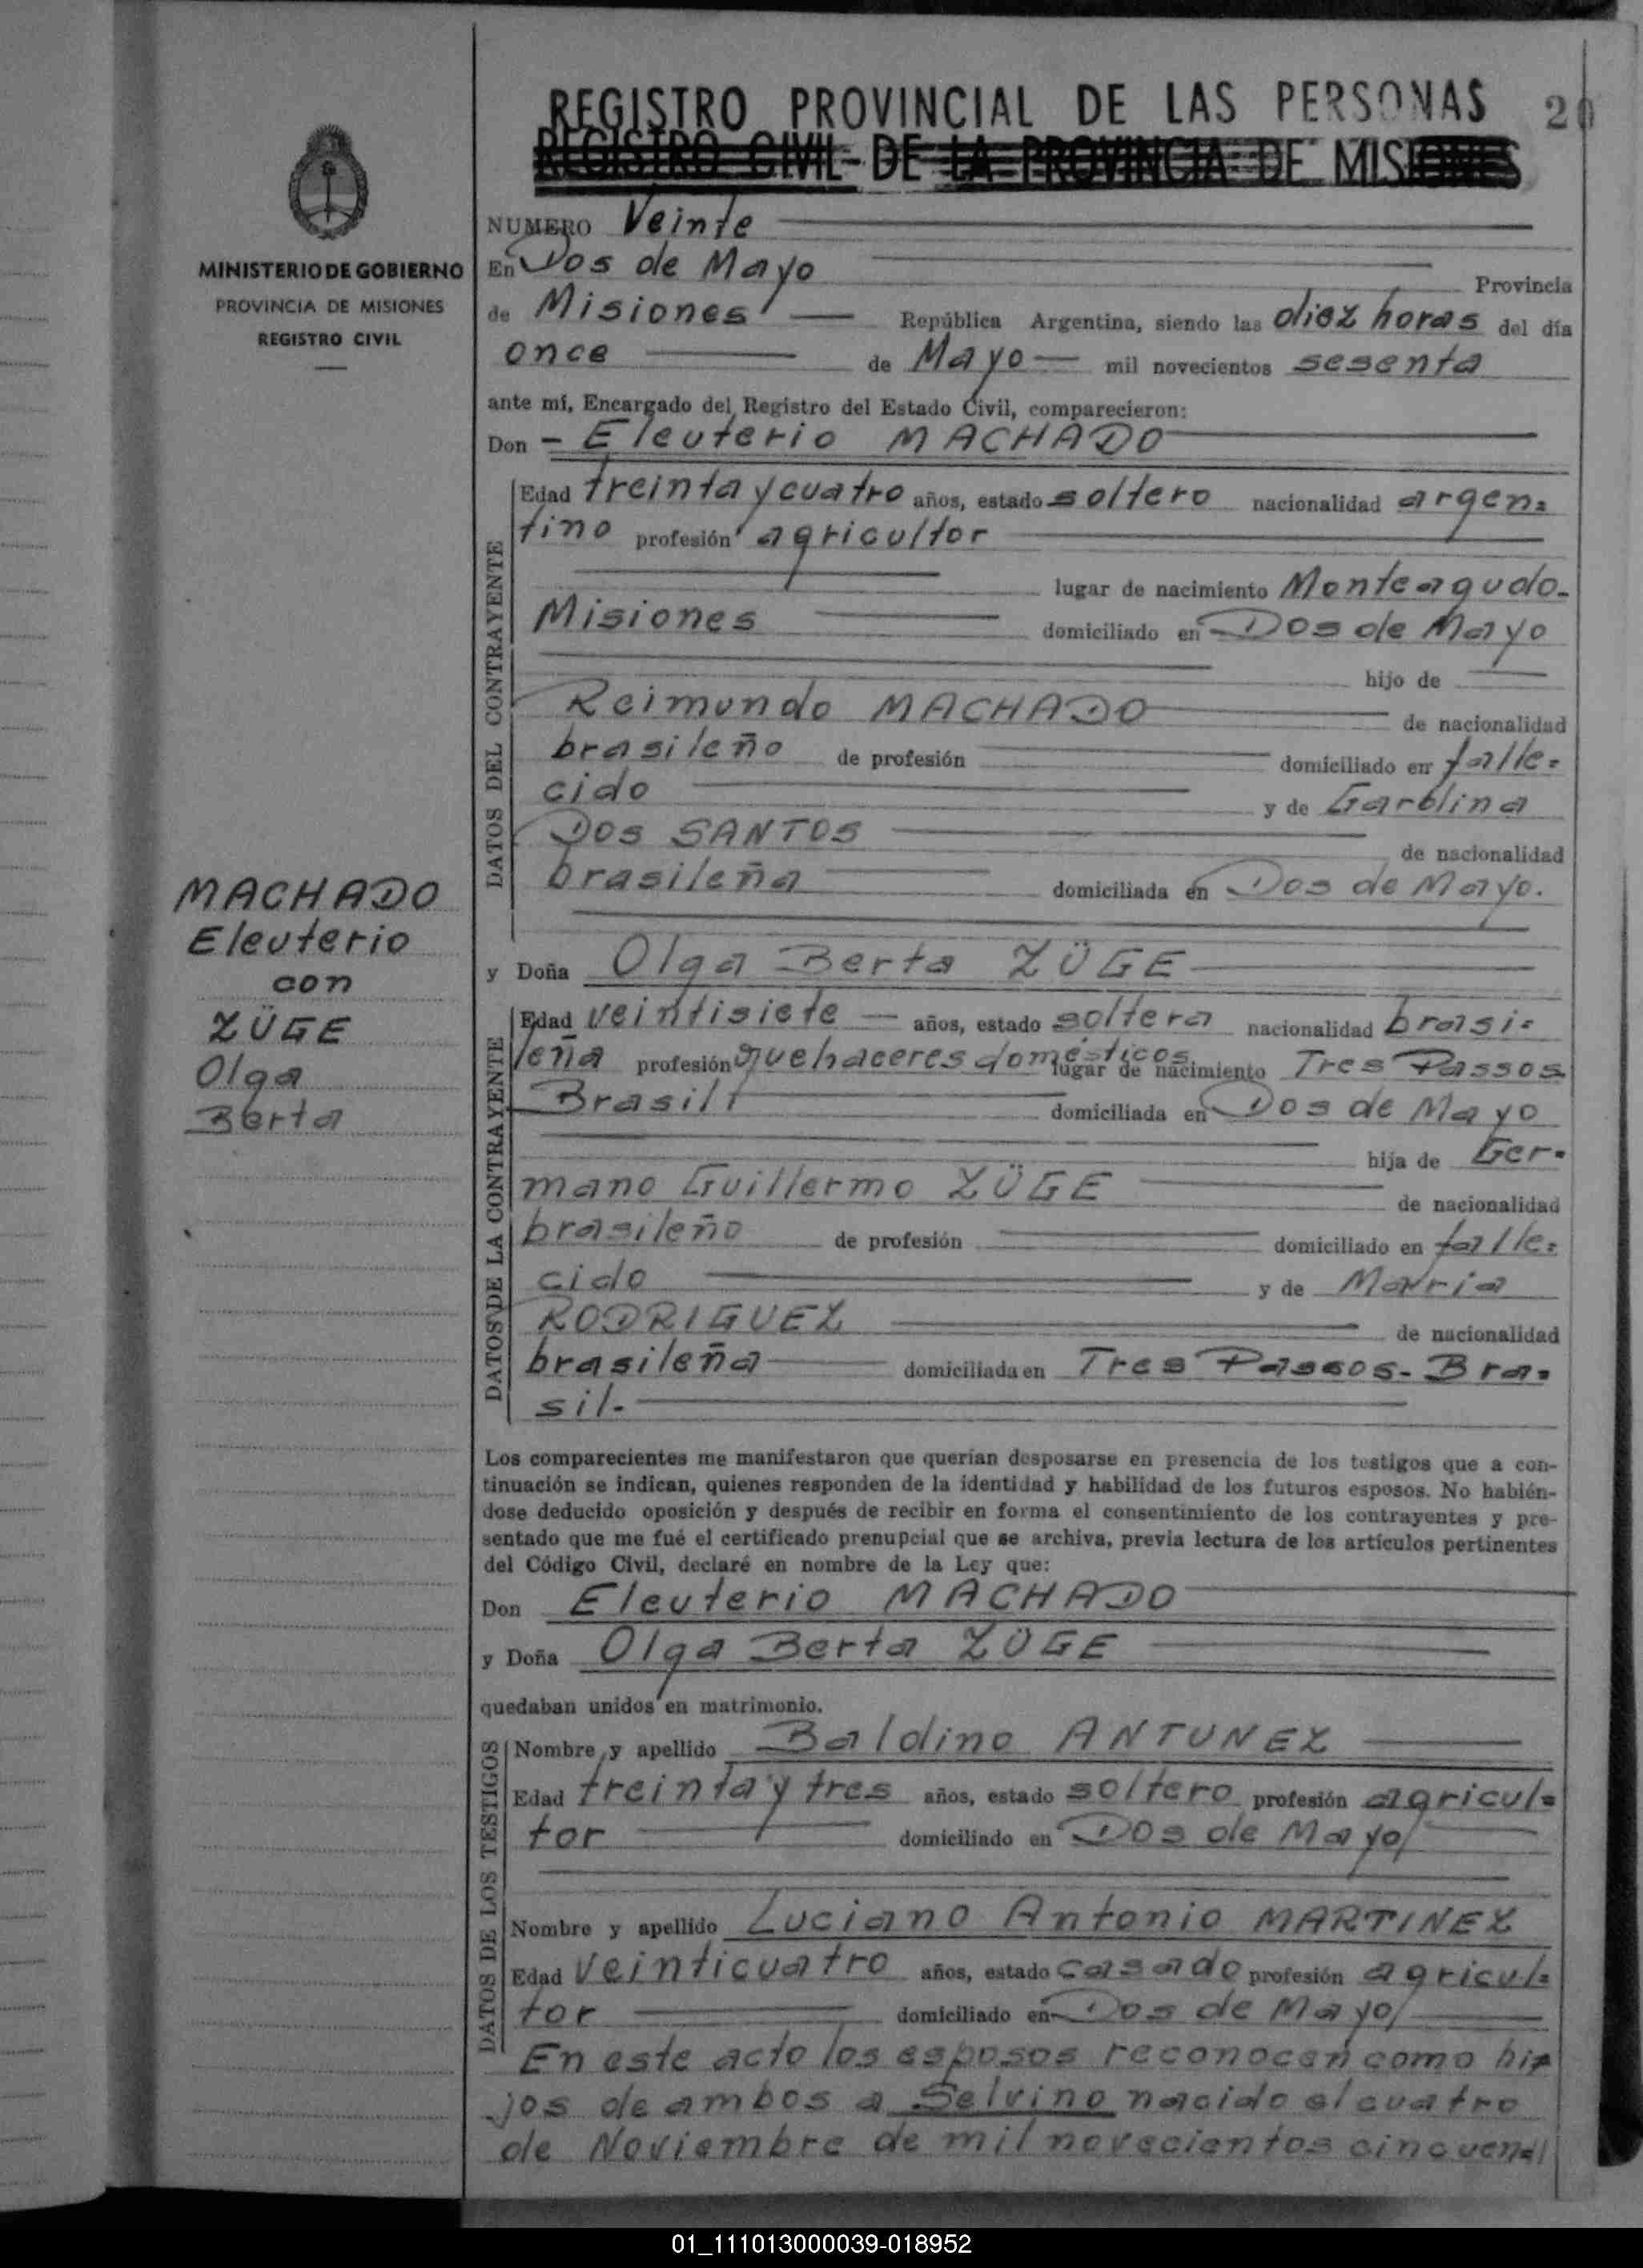 REGISTRO PROVINCIAL DE LAS PERSONAS 20
REGISTRO CIVIL DE LA PROVINCIA DE MISIONES
MINISTERIO DE GOBIERNO
PROVINCIA DE MISIONES
REGISTRO CIVIL
MACHADO
Eleuterio
con
ZÜGE
Olga
Berta
NUMERO Veinte
En Dos de Mayo Provincia
de Misiones República Argentina, siendo las diez horas del día
once de Mayo mil novecientos sesenta
ante mí, Encargado del Registro del Estado Civil, comparecieron:
Don Eleuterio MACHADO
DATOS DEL CONTRAYENTE
Edad treinta y cuatro años, estado soltero nacionalidad argen=
tino profesión agricultor
lugar de nacimiento Monteagudo-
Misiones domiciliado en Dos de Mayo
hijo de
Reimundo MACHADO de nacionalidad
brasileño de profesión domiciliado en falle=
cido y de Carolina
DOS SANTOS de nacionalidad
brasileña domiciliada en Dos de Mayo.
y Doña Olga Berta ZÜGE
DATOS DE LA CONTRAYENTE
Edad veintisiete años, estado soltera nacionalidad brasi=
leña profesión quehaceres domésticos lugar de nacimiento Tres Passos
Brasil domiciliada en Dos de Mayo
hija de Ger=
mano Guillermo ZÜGE de nacionalidad
brasileño de profesión domiciliado en falle=
cido y de Maria
RODRIGUEZ de nacionalidad
brasileña domiciliada en Tres Passos- Bra=
sil.
Los comparecientes me manifestaron que querían desposarse en presencia de los testigos que a con-
tinuación se indican, quienes responden de la identidad y habilidad de los futuros esposos. No habién-
dose deducido oposición y después de recibir en forma el consentimiento de los contrayentes y pre-
sentado que me fué el certificado prenupcial que se archiva, previa lectura de los artículos pertinentes
del Código Civil, declaré en nombre de la Ley que:
Don Eleuterio MACHADO
y Doña Olga Berta ZÜGE
quedaban unidos en matrimonio.
DATOS DE LOS TESTIGOS
Nombre y apellido Baldino ANTUNEZ
Edad treinta y tres años, estado soltero profesión agricul=
tor domiciliado en Dos de Mayo
Nombre y apellido Luciano Antonio MARTINEZ
Edad veinticuatro años, estado casado profesión agricul=
tor domiciliado en Dos de Mayo
En este acto los esposos reconocen como hi=
jos de ambos a Selvino nacido el cuatro
de Noviembre de mil novecientos cincuen=
01_111013000039-018952